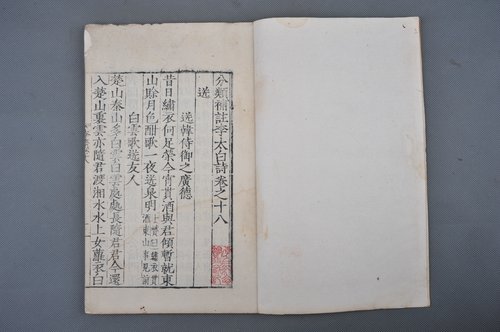 分類補註李太白詩卷之十八
送
送韓侍御之廣德
昔日繡衣何足榮今宵貰酒與君傾暫就東
山賒月色酣歌一夜送泉明
白雲歌送友人
楚山秦山多白雲白雲處處長隨君君今還
入楚山裏雲亦隨君渡湘水水上女蘿衣白